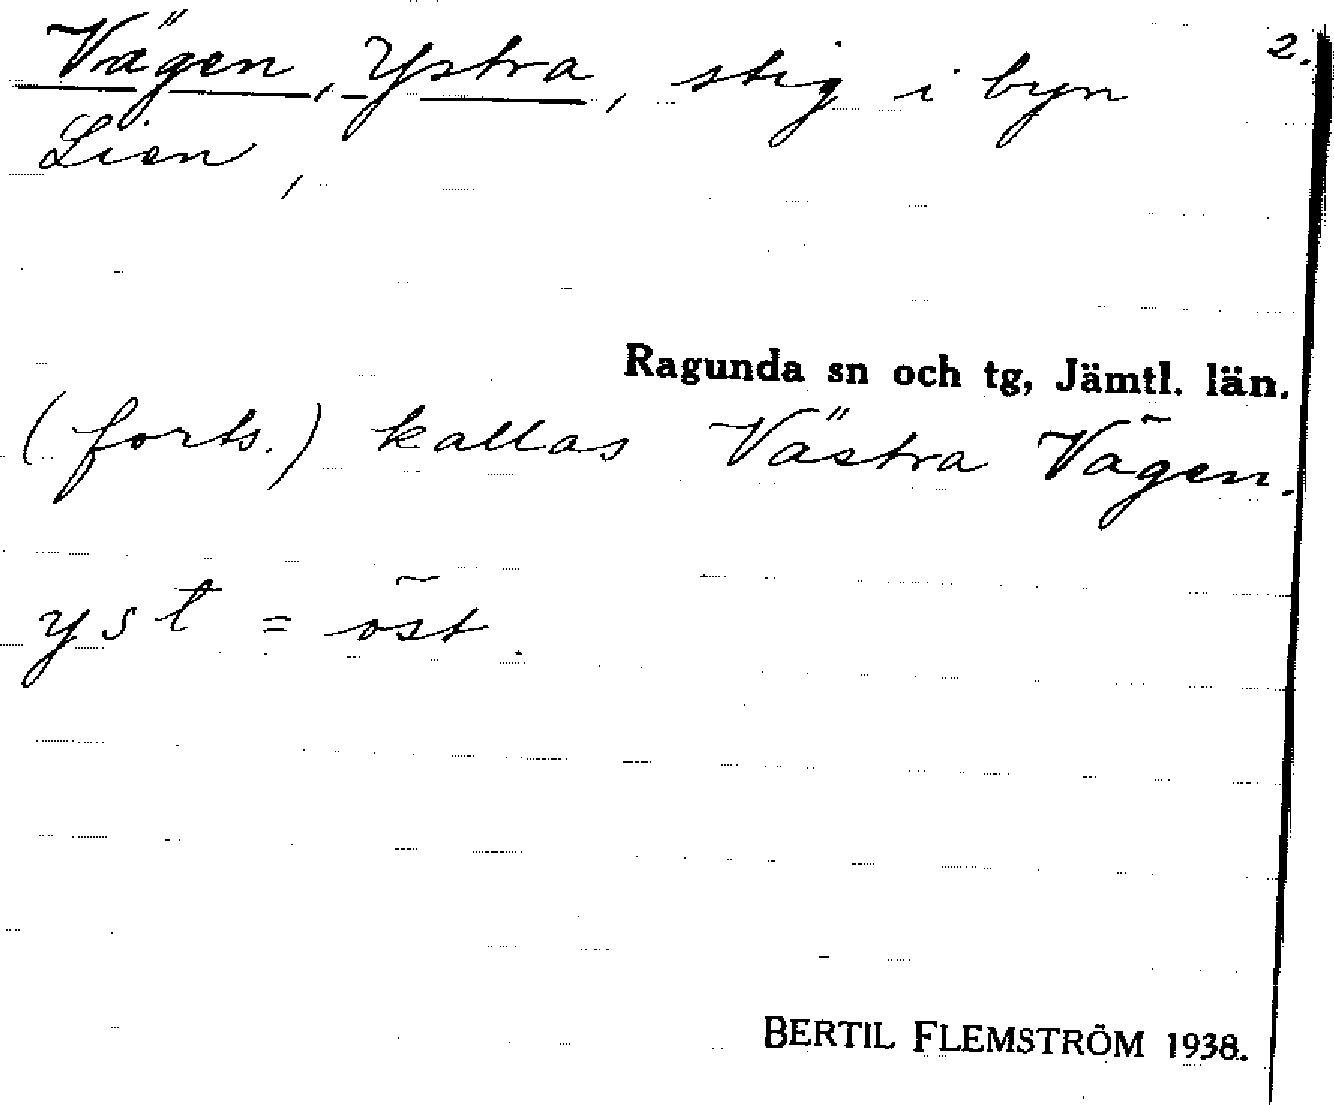 Vägen, Ystra, stig i byn 2.
Lien,
Ragunda sn och tg, Jämtl. län.
(forts.) kallas Västra Vägen.
yst = öst.
BERTIL FLEMSTRÖM 1938.